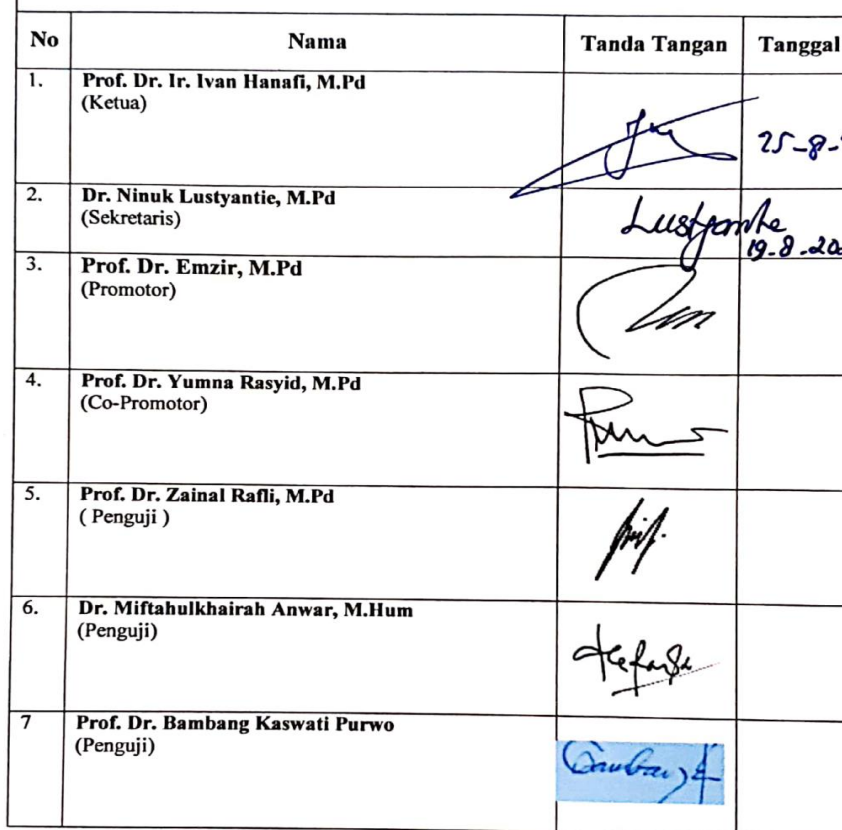 No Nama Tanda Tangan Tanggal
1. Prof. Dr. Ir. Ivan Hanafi, M.Pd
(Ketua)
25-8-
2. Dr. Ninuk Lustyantie, M.Pd
(Sekretaris)
Lustyantie
19-8-20
3. Prof. Dr. Emzir, M.Pd
(Promotor)
4. Prof. Dr. Yumna Rasyid, M.Pd
(Co-Promotor)
5. Prof. Dr. Zainal Rafli, M.Pd
( Penguji )
6. Dr. Miftahulkhairah Anwar, M.Hum
(Penguji)
7 Prof. Dr. Bambang Kaswati Purwo
(Penguji)